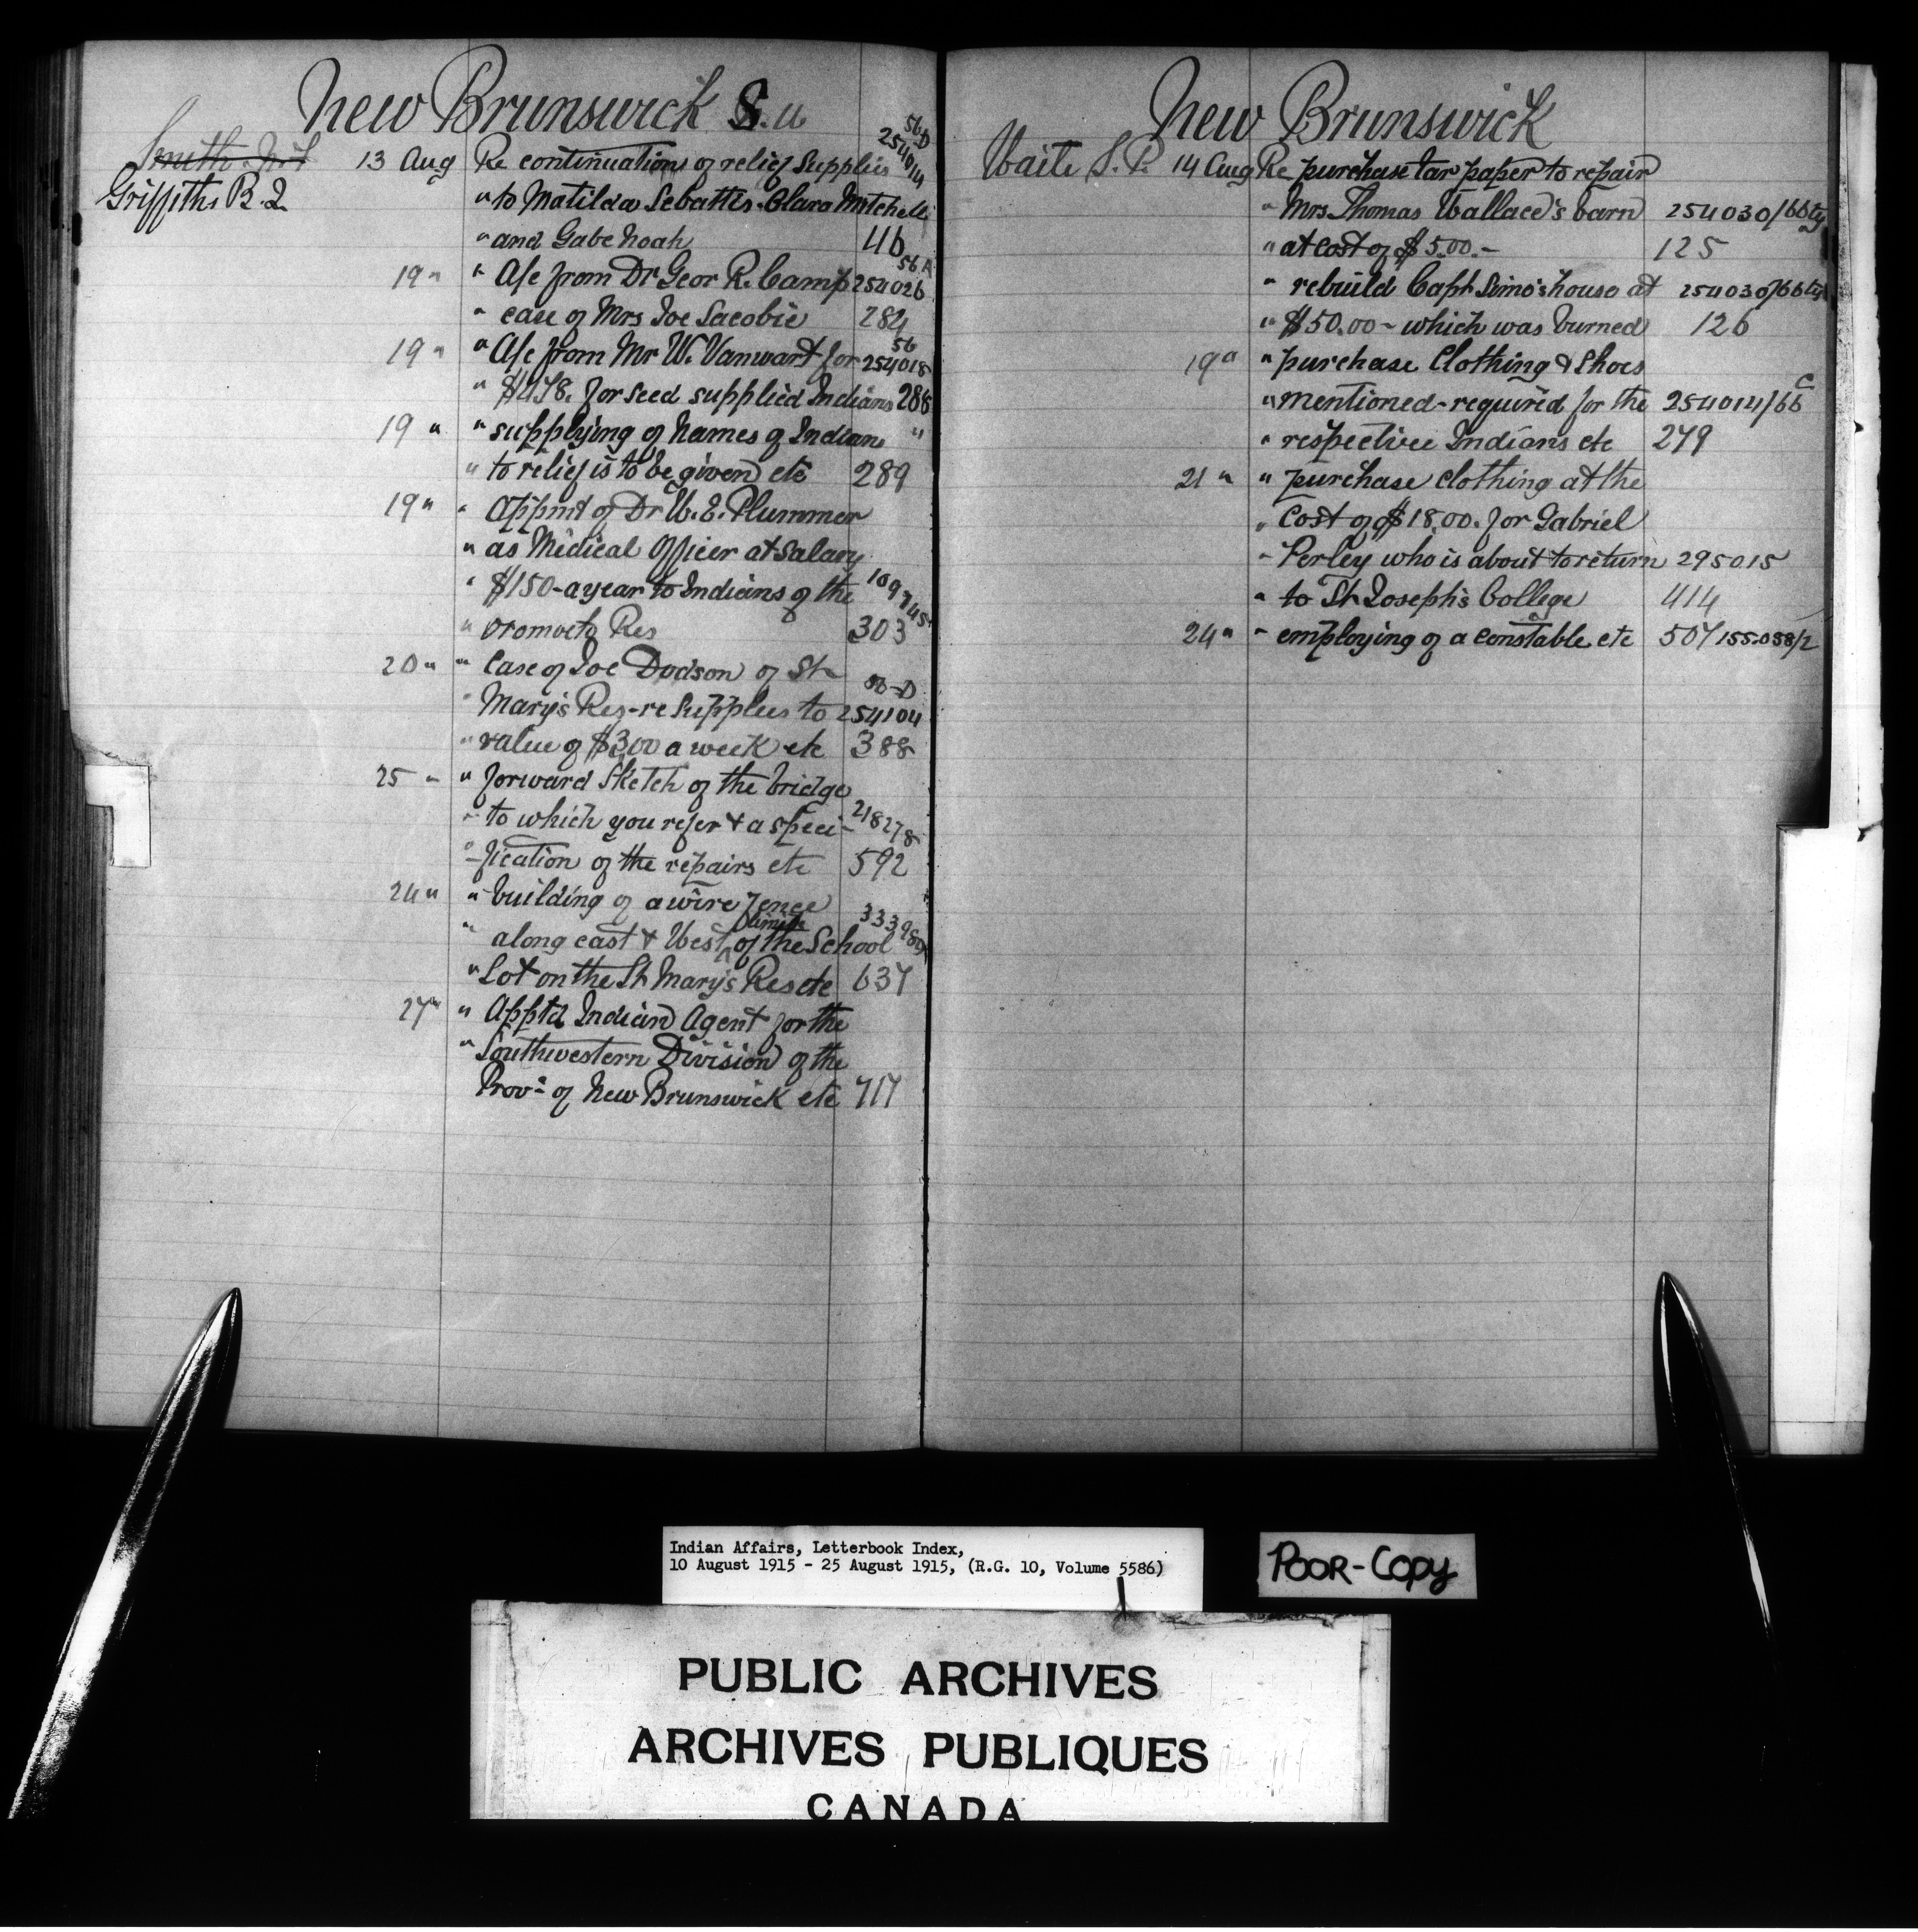 New Brunswick S.W.
Smith
Griffiths B.J.
56D
254014
13 Aug Re continuation of relief supplies
" to Matilda Sebattis. Clara Mitchell
" and Gabe Noah 46
56A
19 " " A/c from Dr Geor R. Camp 254026
" case of Mrs Joe Sacobie 284
56
19 " " A/c from Mr W. Vanwart for 254018
" $478. for seed supplied Indians 288
19 " " supplying of Names of Indians "
" to relief is to be given etc 289
19 " " Appmt of Dr W. E. Plummer
" as Medical Officer at salary
" $150 - a year to Indians of the
" Oromocto Res 303
20 " " Case of Joe Dodson of St
56-D
" Mary's Res - re supplies to 254104
" value of $3.00 a week etc 388
25 " " forward sketch of the bridge
" to which you refer & a speci- 218278
" -fication of the repairs etc 592
24 " " building of a wire fence
" along east & West limits of the School
" Lot on the St Mary's Res etc 637
27 " " Apptd Indian Agent for the
" Southwestern Division of the
Prov- of New Brunswick etc 717
New Brunswick
Waite S. P. 14 Aug Re purchase tar paper to repair
" Mrs Thomas Wallace's barn 254030/66
" at cost of $5.00.- 125
" rebuild Capt Simo's house at 254030/66
" $50.00 - which was burned 126
19 " " purchase Clothing & Shoes
" mentioned - required for the 254014/66 C
" respective Indians etc 279
21 " " purchase clothing at the
" Cost of $18.00. for Gabriel
" Perley who is about to return 295015
" to St Joseph's College 414
24 " " employing of a constable etc 507 155.058/2
Indian Affairs, Letterbook Index,
10 August 1915 - 25 August 1915, (R.G. 10, Volume 5586)
POOR-COPY
PUBLIC ARCHIVES
ARCHIVES PUBLIQUES
CANADA